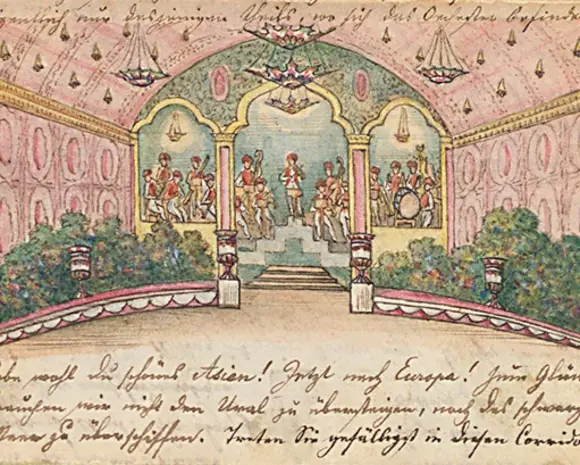 gentlich nur desjenigen Theils, wo sich das Orchester befinde
ebe wohl du schönes Asien! Jetzt nach Europa! Zum Glü
rauchen wir nicht den Ural zu übersteigen, noch das schwarz
Meer zu überschiffen. Treten Sie gefälligst in diesen Corrido